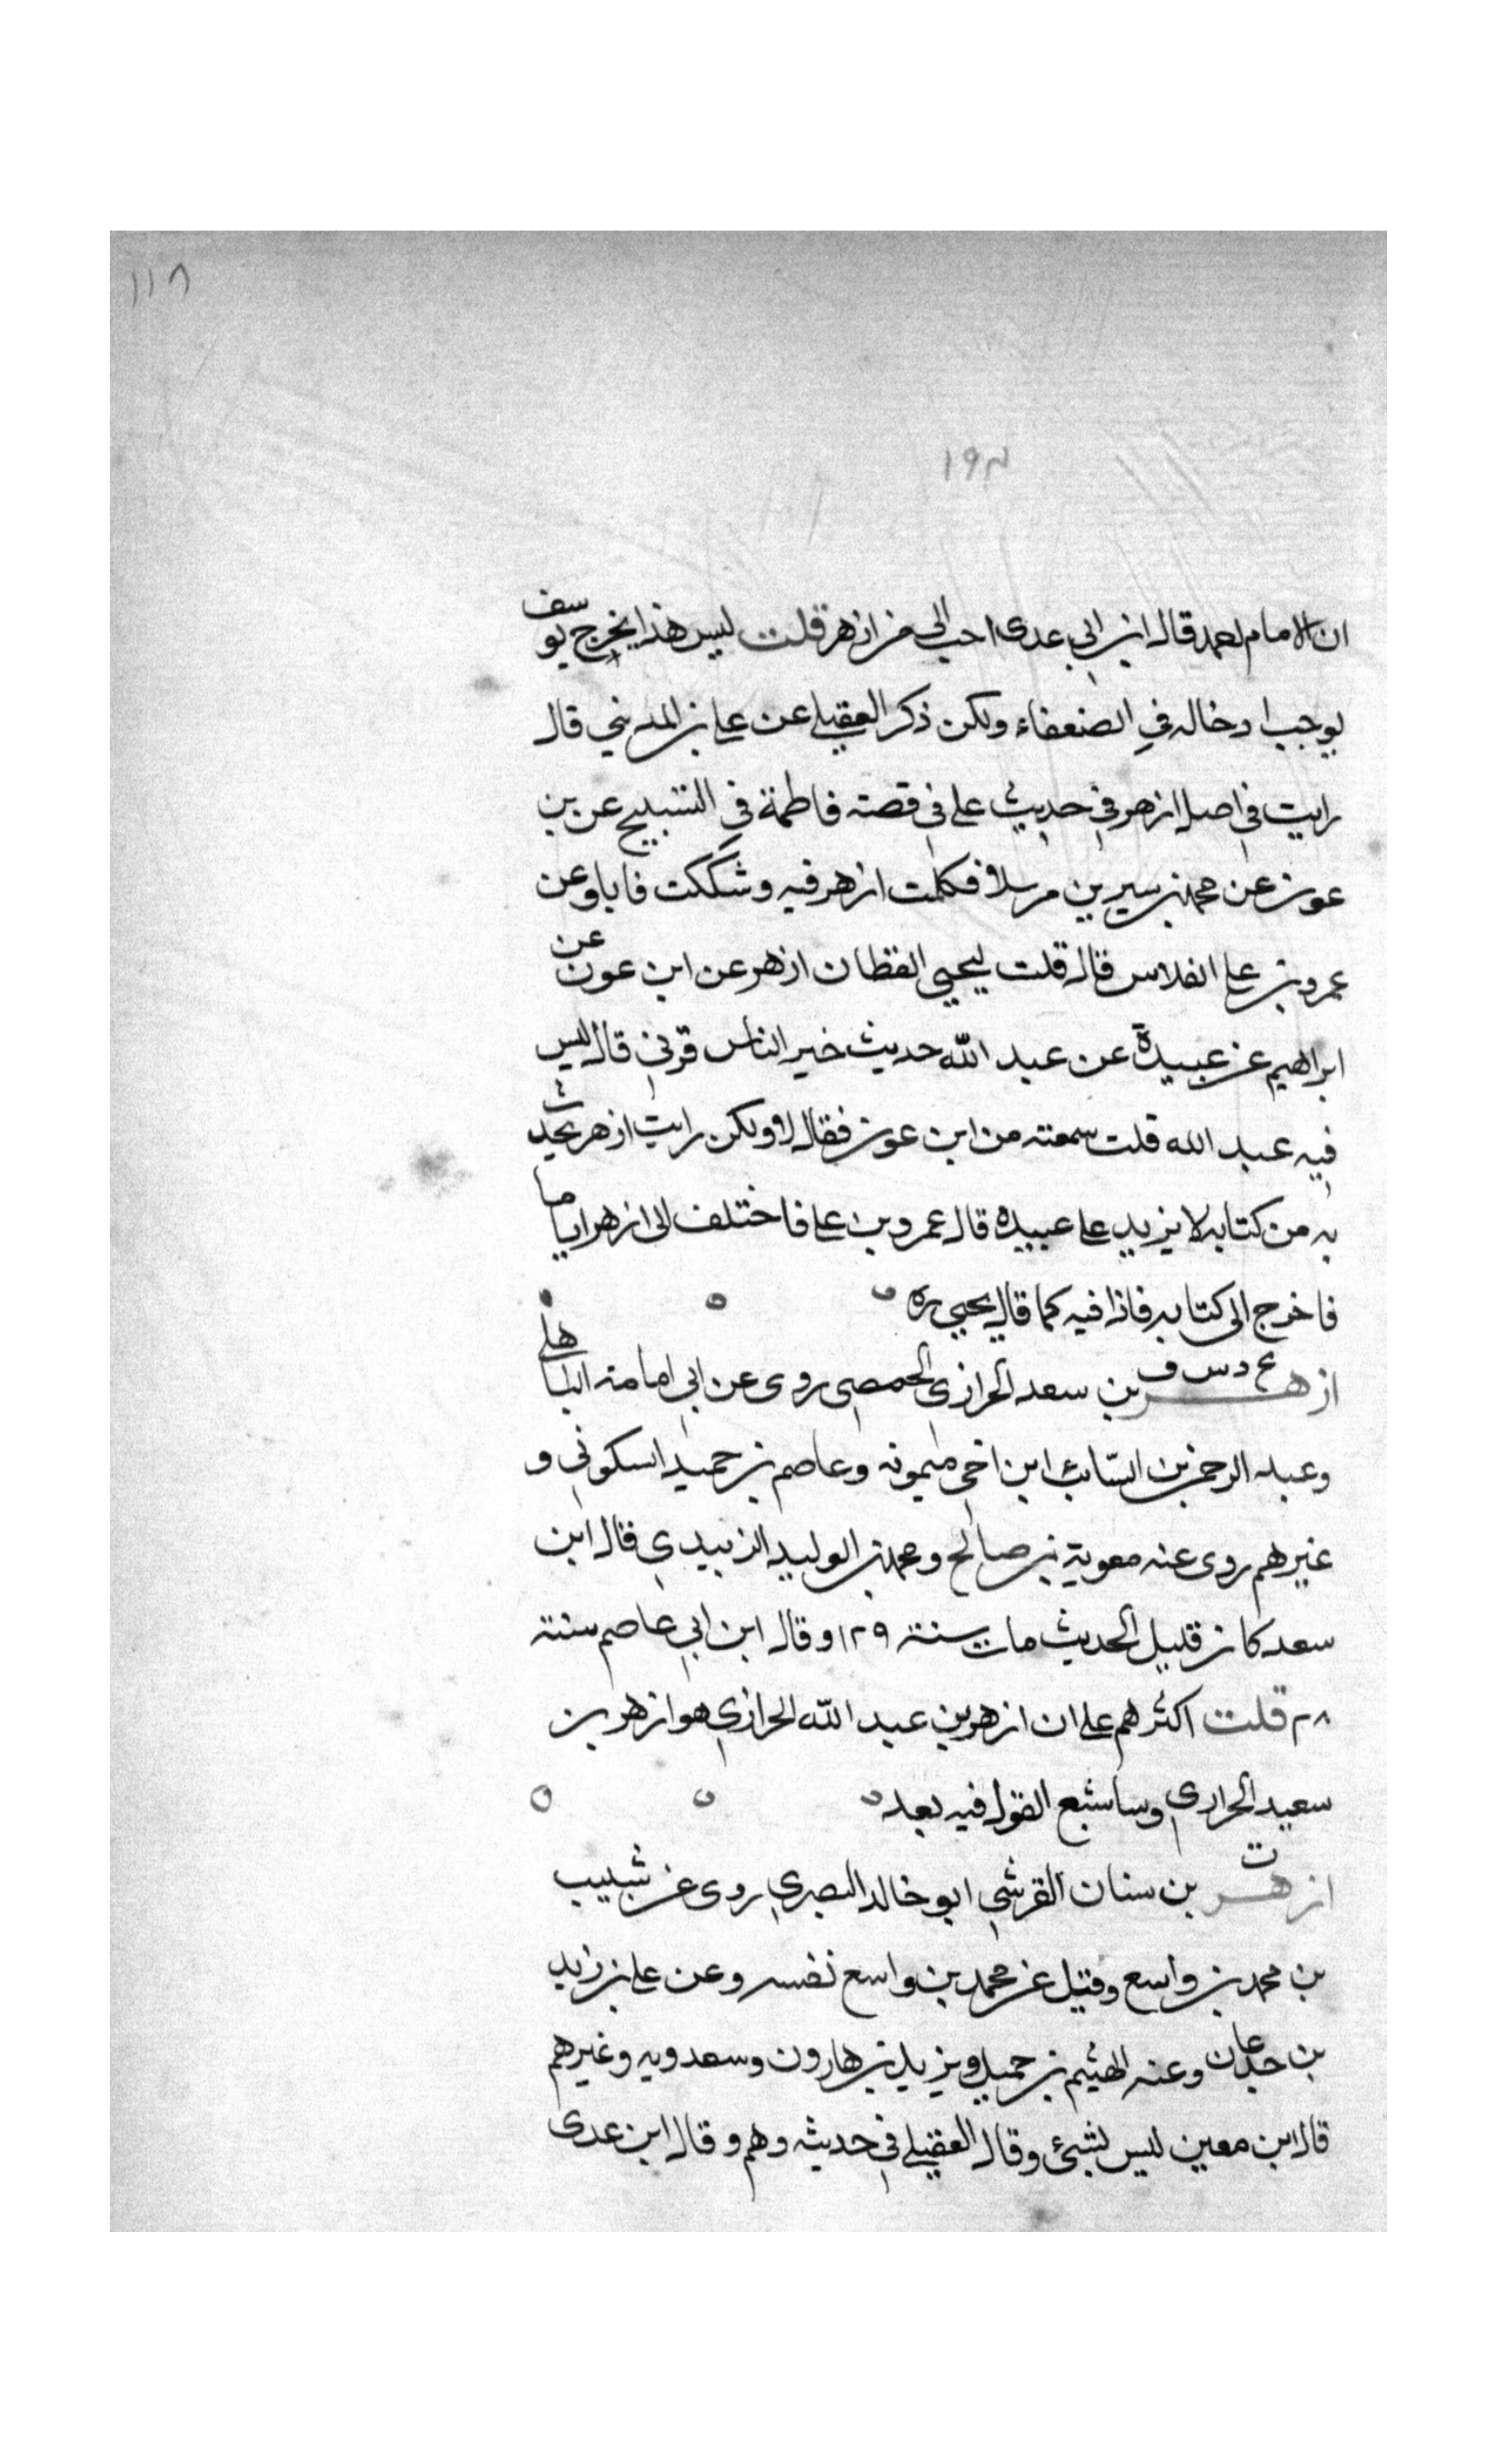 ١١٨
١٩٣
ان الامام احمد قال ابن ابي عدى احب الي من ازهر قلت ليس هذا بخرج يوسف
يوجب ادخاله في الضعفاء ولكن ذكر العقيلي عن علي بن المديني قال
رايت في اصل ازهر في حديث علي في قصة فاطمة في التسبيح عن بن
عون عن محمد بن سيرين مرسلا فكلمت ازهر فيه وشككت فابا وعن
عمرو بن علي الفلاس قال قلت ليحيي القطان ازهر عن ابن عون عن
ابراهيم عن عبيدة عن عبد الله حديث خير الناس قرني قال ليس
فيه عبد الله قلت سمعته من ابن عون فقال لا ولكن رايت ازهر يحدث
به من كتابه لا يزيد علي عبيده قال عمرو بن علي فاختلف الى ازهر اياما
فاخرج الى كتابه فاذا فيه كما قال يحيي ره
ازهر بن سعد الحرازى الحمصي روى عن ابي امامة الباهلي
ع د س ف
وعبد الرحمن بن السائب ابن اخي ميمونه وعاصم بن حميد السكوني و
غيرهم روى عنه معوية بن صالح ومحمد بن الوليد الزبيدي قال ابن
سعد كان قليل الحديث مات سنة ١٢٩ وقال ابن ابي عاصم سنة
٢٨ قلت اكثرهم علي ان ازهر بن عبد الله الحرازي هو ازهر بن
سعيد الحرازي وساشبع القول فيه بعد
ت
ازهر بن سنان القرشي ابو خالد البصري روى عن شبيب
بن محمد بن واسع وقيل عن محمد بن واسع نفسه وعن علي بن زيد
بن جدعان وعنه الهيثم بن حميد ويزيد بن هارون وسعدويه وغيرهم
قال ابن معين ليس بشيئ وقال العقيلي في حديثه وهم وقال ابن عدى